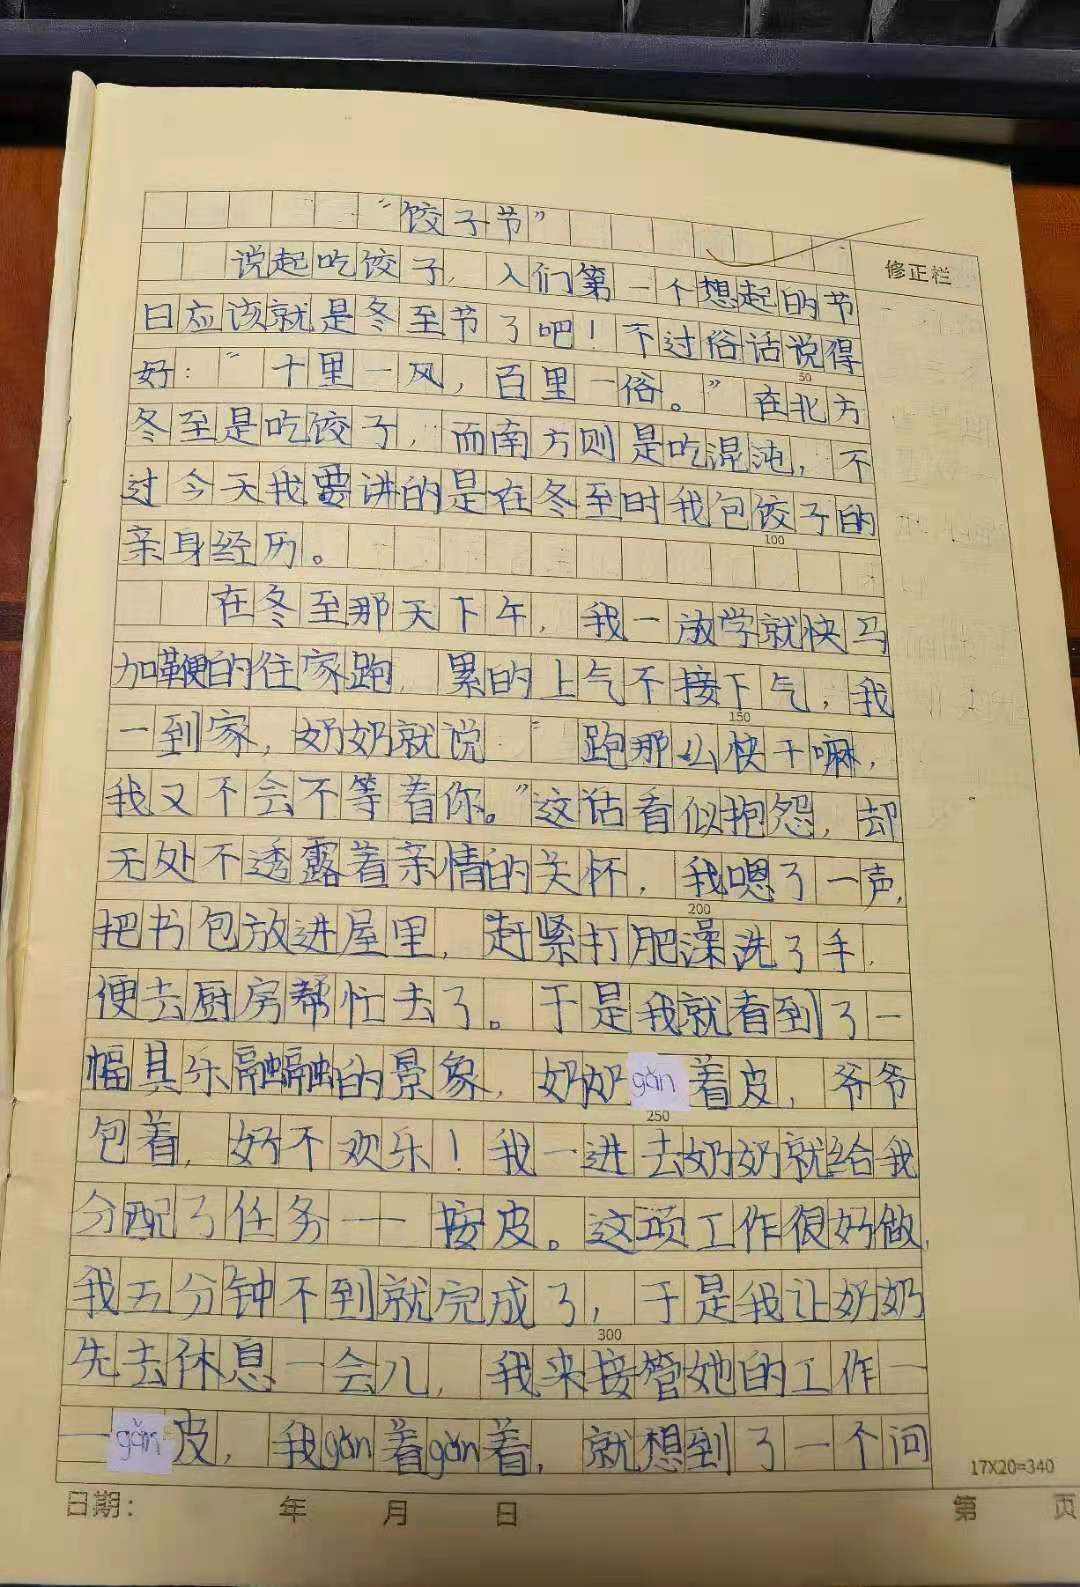 “饺子节”
修正栏
说起吃饺子，人们第一个想起的节
日应该就是冬至节了吧！不过俗话说得
好：“十里一风，百里一俗。”在北方
50
冬至是吃饺子，而南方则是吃混沌，不
过今天我要讲的是在冬至时我包饺子的
100
亲身经历。
在冬至那天下午，我一放学就快马
加鞭的往家跑，累的上气不接下气，我
150
一到家，奶奶就说“跑那么快干嘛，
我又不会不等着你。”这话看似抱怨，却
无处不透露着亲情的关怀，我嗯了一声，
200
把书包放进屋里，赶紧打肥澡洗了手，
便去厨房帮忙去了。于是我就看到了一
幅其乐融融的景象，奶奶gǎn着皮，爷爷
250
包着，好不欢乐！我一进去奶奶就给我
分配了任务——按皮。这项工作很好做，
我五分钟不到就完成了，于是我让奶奶
300
先去休息一会儿，我来接管她的工作—
—gǎn皮，我gǎn着gǎn着，就想到了一个问
17X20=340
日期： 年 月 日 第 页